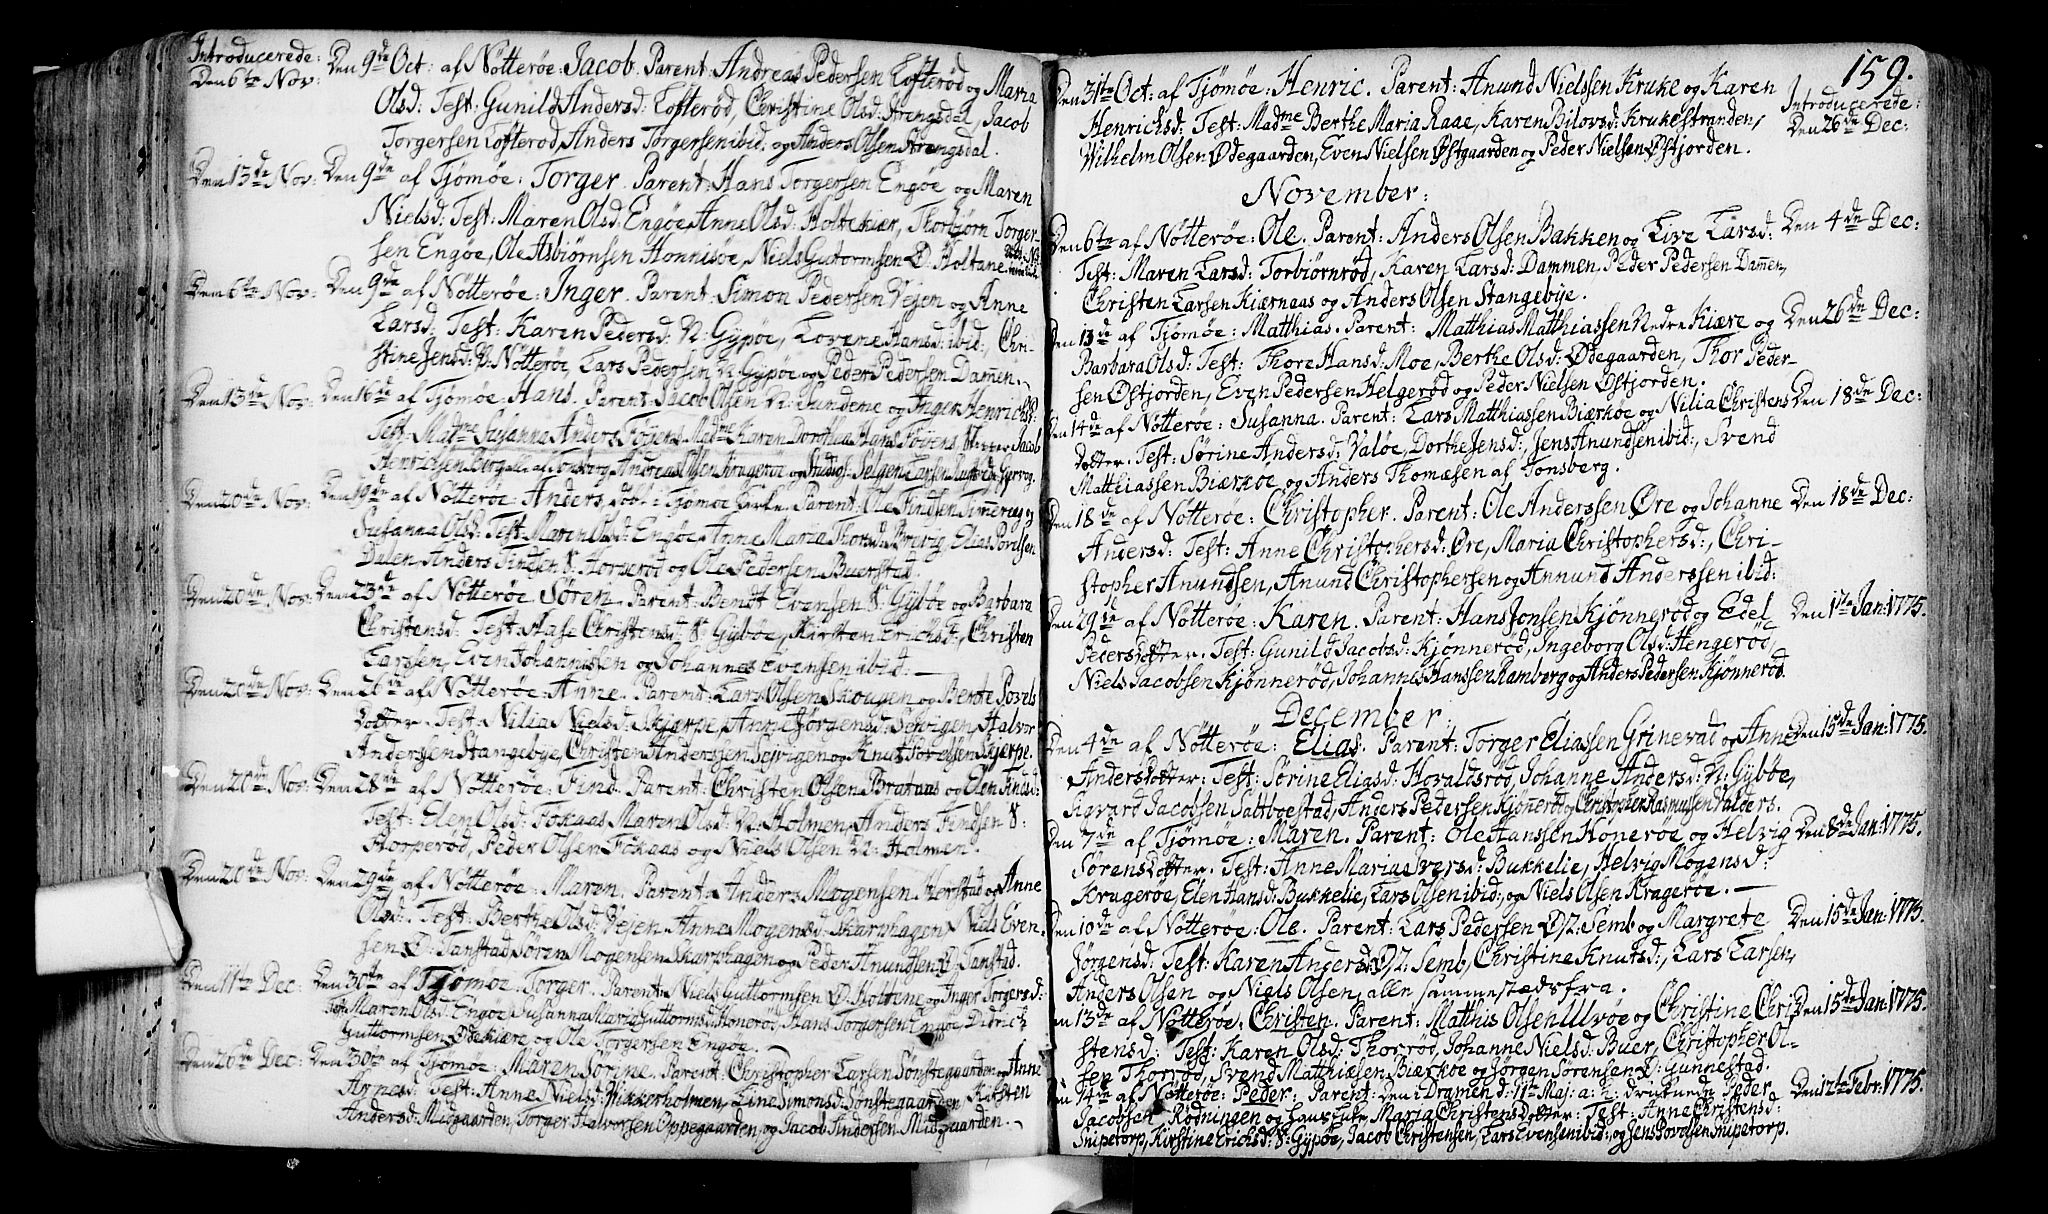 Introducerede:
Den 6te Nov: Den 9de Oct: af Nötterøe: Jacob. Parent: Andreas Pedersen Lofterød og Maria
Olsd: Test: Gunild Andersd: Lofterød, Christine Olsd: Strengsdal, Jacob
Torgersen Lofterød, Anders Torgersen ibid: og Anders Olsen Strengsdal.
Den 13de Nov: Den 9de af Tjömöe: Torger. Parent: Hans Torgersen Engöe og Maren
Nielsd: Test: Maren Olsd: Engöe, Anne Olsd: Holtekiær, Thorbjørn Torger-
sen Engöe, Ole Asbiörnsen Honnisöe, Niels Gutormsen Ø. Holtane.
Den 6te Nov: Den 9de af Nötterøe: Inger. Parent: Simon Pedersen Vejen og Anne
Larsd: Test: Karen Pedersd: N: Gypöe, Lovene Hansd: ibid:, Chri-
stine Jensd: N: Nötteröe, Lars Pedersen N: Gypöe og Peder Pedersen Damen.
Den 13de Nov: Den 16de af Tjömöe: Hans. Parent: Jacob Olsen N: Sundene og Inger Henrichsd:
Test: Madme Susanna Anders Föyens, Madme Karen Dorothea Hans Föyens, Jacob
Henrichsen Berg af Tonsberg, Andreas Olsen Kragerøe og
Den 20de Nov: Den 19de af Nötterøe: Anders, Parent: Ole Findsen og
Susanna Olsd: Test: Maren Olsd: Engöe, Anne Maria Thorsd: Brevig, Elias Povelsen
Dalen, Anders Findsen S: Horperöd og Ole Pedersen Buerstad.
Den 20de Nov: Den 23de af Nötterøe: Sören. Parent: Bendt Evensen S: Gyböe og Barbara
Christensd: Test: Aase Christensd: S: Gyböe, Kirsten Erichsd:, Christen
Larssen, Even Johannissen og Johannes Evensen ibid:
Den 20de Nov: Den 26de af Nötterøe: Anne. Parent: Lars Olsen Skougen og Berte Povels
Dotter. Test: Nilia Nielsd: Skjerpe, Anne Jörgensd: Sevrigen, Halvor
Anderssen Stangebye, Christen Anderssen Sevrigen og Knut Sörensen Skjerpe.
Den 20de Nov: Den 28de af Nötterøe: Find. Parent: Christen Olsen Brataas og Elen Findsd:
Test: Elem Olsd: Fökaas, Maren Olsd: N: Holmen, Anders Findsen S:
Horperöd, Peder Olsen Fökaas og Niels Olsen N: Holmen.
Den 20de Nov: Den 29de af Nötteröe: Maren. Parent: Anders Mogensen Herstad og Anne
Olsd: Test: Berthe Olsd: Vejen, Anne Mogensd: Skarphagen, Niels Even-
sen Ø: Tanstad, Sören Mogensen Skarphagen og Peder Anundsen Ø: Tanstad.
Den 11te Dec: Den 30te af Tjömöe: Torger. Parent: Niels Guttormsen Ø. Holtene og Inger Torgersd:
Test: Maren Olsd: Engöe, Susanna Maria Guttormsd: Honeröd, Hans Torgersen Engöe, Didrich
Guttormsen Ødekiære og Ole Torgersen Engöe.
Den 26de Dec: Den 30te af Tjömöe: Maren Sörine. Parent: Christopher Larsen Sönstegaarden og Anne
Arnesd: Test: Anne Nielsd: Vikkerholmen, Line Simonsd: Sönstegaarden, Kirsten
Andersd: Midgaarden, Torger Halvorsen Oppegaarden, og Jacob Andersen Midgaarden.
159.
Den 31te Oct: af Tjömöe: Henric. Parent: Anund Nielssen Kruke og Karen Introducerede:
Henrichsd: Test: Madme Berthe Maria Raae, Karen Bilovsd: Krukestranden, Den 26de Dec:
Wilhelm Olsen Ødegaarden, Even Nielsen Østgaarden og Peder Nielsen Østjorden.
November:
Den 6te af Nötteröe: Ole. Parent: Anders Olsen Bakken og Live Larsd: Den 4de Dec:
Test: Maren Larsd: Torbiörnröd, Karen Larsd: Dammen, Peder Pedersen Damen,
Christen Larsen Kiærnaas og Anders Olsen Stangebye.
Den 13de af Tjömöe: Matthias. Parent: Matthias Matthiassen Nedre Kiære og Den 26de Dec:
Barbara Olsd: Test: Thore Hansd: Moe, Berthe Olsd: Ødegaarden, Thor Peder-
sen Østjorden, Even Pedersen Helgeröd og Peder Nielsen Østjorden.
Den 14de af Nötteröe: Susanna. Parent: Lars Matthiassen Biærköe og Nilia Christens Den 18de Dec:
Dotter. Test: Sörine Andersd: Valöe, Dorthe Jensd:, Jens Anundsen ibid:, Svend
Matthiassen Biærköe og Anders Thomæsen af Tonsberg.
Den 18de af Nötteröe: Christopher. Parent: Ole Anderssen Øre og Johanne Den 18de Dec:
Andersd: Test: Anne Christophersd: Øre, Maria Christophersd:, Chri-
stopher Anundsen, Anund Christophersen og Annund Anderssen ibid:
Den 29de af Nötteröe: Karen. Parent: Hans Jonsen Kjönneröd og Edel Den 1te Jan: 1775.
Peders Dotter. Test: Gunild Jacobsd: Kjönneröd, Ingeborg Olsd: Hengeröd,
Niels Jacobsen Kjönneröd, Johannes Hanssen Ramberg og Anders Pedersen Kjönneröd.
December.
Den 4de af Nötteröe: Elias. Parent: Torger Eliassen Grinevad og Anne Den 15de Jan: 1775.
Anders Dotter. Test: Sörine Eliasd: Horaldsröd, Johanne Andersd: N: Gyböe,
Sigvard Jacobsen Sattboestad, Anders Pedersen Kjöneröd og Christopher Rasmussen Valders.
Den 7de af Tjömöe: Maren. Parent: Ole Hanssen Honeröe og Helvig Den 8de Jan: 1775.
Sörens Dotter. Test: Anne Maria Iversd: Bukkelie, Helvig Mogensd:
Krugeröe, Elen Hansd: Bukkelie, Lars Olsen ibid:, og Niels Olsen Krageröe.
Den 10de af Nötteröe: Ole. Parent: Lars Pedersen Ø: Semb og Margrete Den 15de Jan: 1775.
Jörgensd: Test: Karen Andersd: Ø: Semb, Christine Knutsd:, Lars Larsen,
Anders Olsen og Niels Olsen, alle sammestædsfra.
Den 13de af Nötteröe: Christen. Parent: Matthis Olsen Ulvöe og Christine Chri- Den 15de Jan: 1775.
stensd: Test: Karen Olsd: Thorröd, Johanne Nielsd: Buer, Christopher Ol-
sen Thorröd, Svend Matthiæsen Biærköe og Jörgen Sörensen Ø: Gunnestad.
Den 14de af Nötteröe: Peder. Parent: Den i Dramen d: 11te Maj: a: h: druknede Peder Den 12te Febr: 1775.
Jacobsen Rödningen og Hustrue Maria Christens Dotter. Test: Anne Christensd:
Snipetorp, Kirstine Erichsd: S: Gypöe, Jacob Christensen, Lars Evensen ibid: og Jens Povelsen Snipetorp.